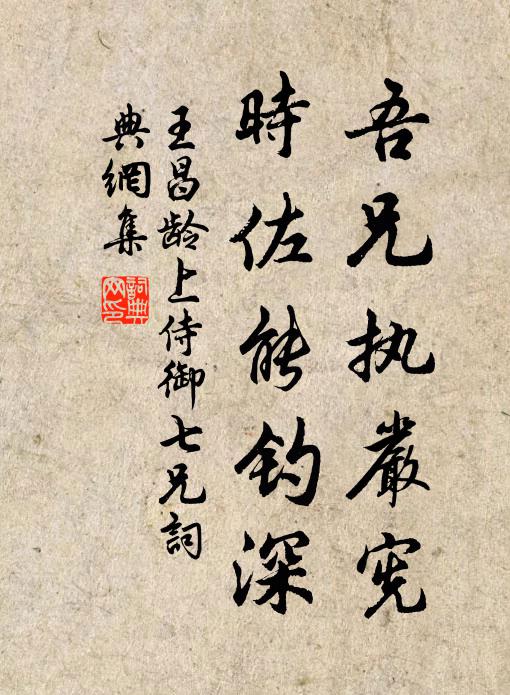 吾兄执嚴宪
時佐能钓深
王昌龄上侍御七兄詞
典網集
詞典网印